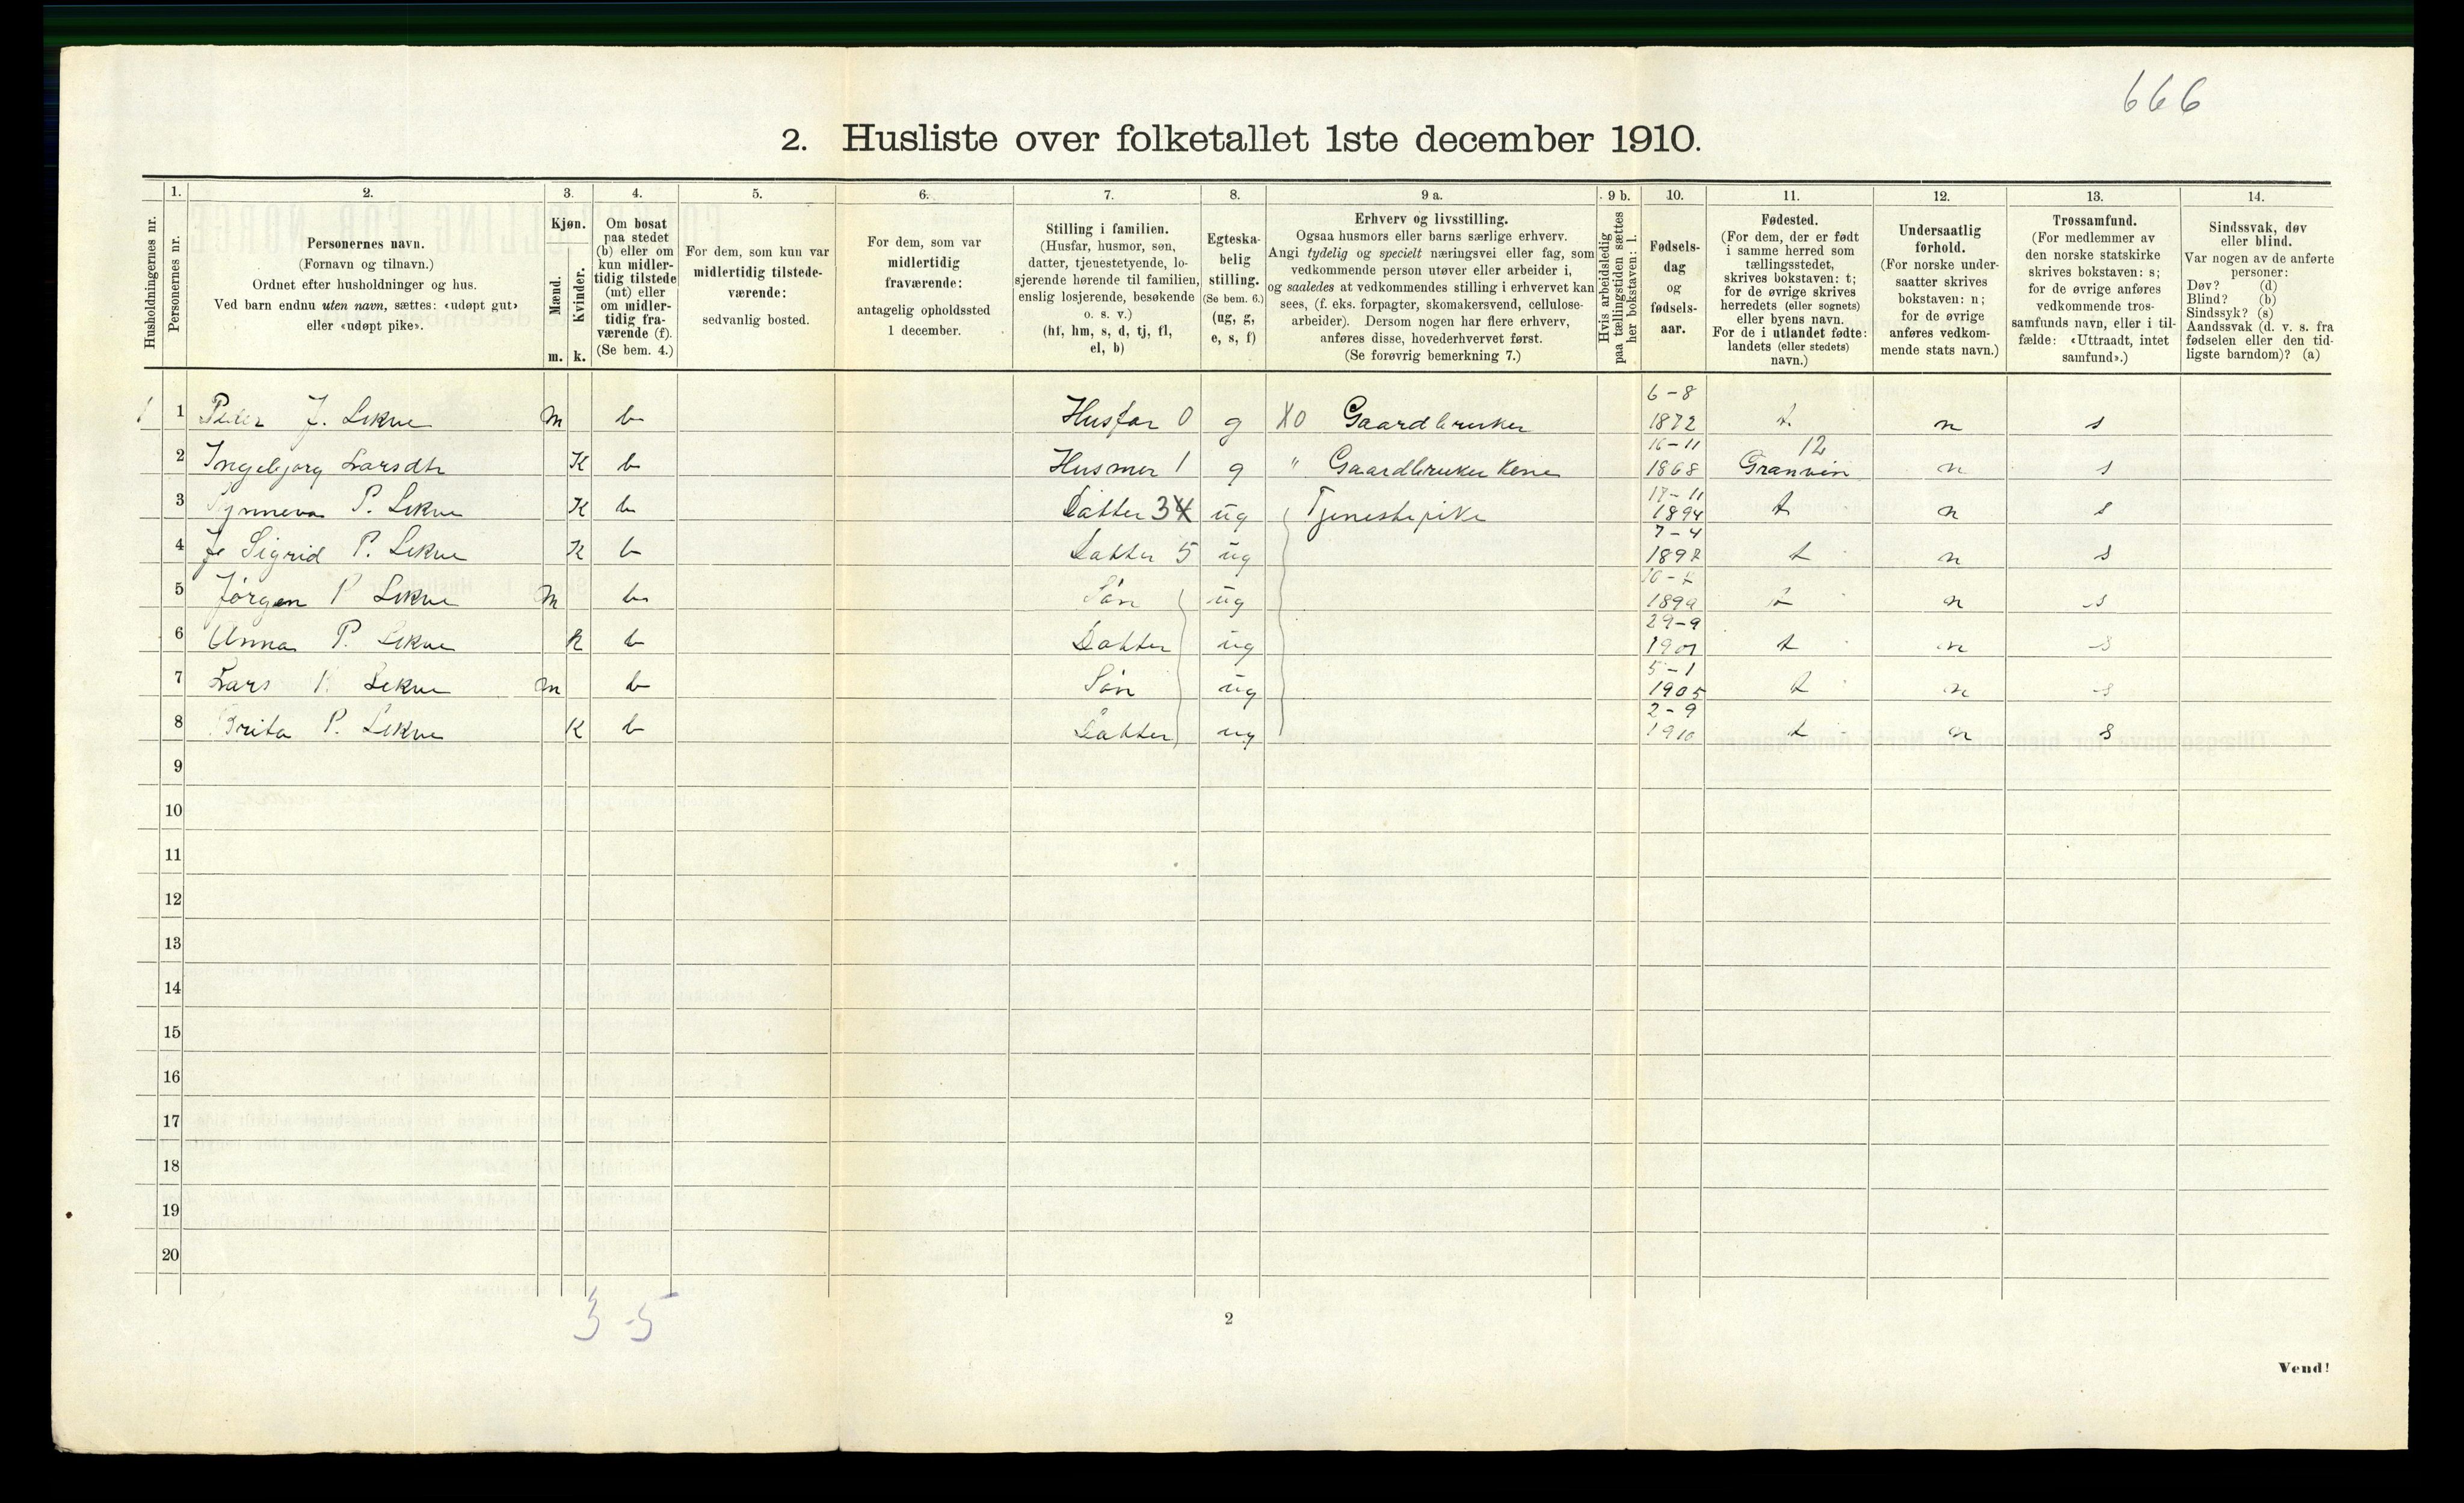 666
2. Husliste over folketallet 1ste december 1910.
1. 2. 3. 4. 5. 6. 7. 8. 9 a. 9 b. 10. 11. 12. 13. 14.
Husholdningernes nr.
Personernes nr.
Personernes navn.
(Fornavn og tilnavn.)
Ordnet efter husholdninger og hus.
Ved barn endnu uten navn, sættes: «udøpt gut»
eller «udøpt pike».
Kjøn.
Mænd.
Kvinder.
m. k.
Om bosat
paa stedet
(b) eller om
kun midler-
tidig tilstede
(mt) eller
om midler-
tidig fra-
værende (f).
(Se bem. 4.)
For dem, som kun var
midlertidig tilstede-
værende:
sedvanlig bosted.
For dem, som var
midlertidig
fraværende:
antagelig opholdssted
1 december.
Stilling i familien.
(Husfar, husmor, søn,
datter, tjenestetyende, lo-
sjerende hørende til familien,
enslig losjerende, besøkende
o. s. v.)
(hf, hm, s, d, tj, fl,
el, b)
Egteska-
belig
stilling.
(Se bem. 6.)
(ug, g,
e, s, f)
Erhverv og livsstilling.
Ogsaa husmors eller barns særlige erhverv.
Angi tydelig og specielt næringsvei eller fag, som
vedkommende person utøver eller arbeider i,
og saaledes at vedkommendes stilling i erhvervet kan
sees, (f. eks. forpagter, skomakersvend, cellulose-
arbeider). Dersom nogen har flere erhverv,
anføres disse, hovederhvervet først.
(Se forøvrig bemerkning 7.)
Hvis arbeidsledig
paa tællingstiden sættes
her bokstaven: l.
Fødsels-
dag
og
fødsels-
aar.
Fødested.
(For dem, der er født
i samme herred som
tællingsstedet,
skrives bokstaven: t;
for de øvrige skrives
herredets (eller sognets)
eller byens navn.
For de i utlandet fødte:
landets (eller stedets)
navn.)
Undersaatlig
forhold.
(For norske under-
saatter skrives
bokstaven: n;
for de øvrige
anføres vedkom-
mende stats navn.)
Trossamfund.
(For medlemmer av
den norske statskirke
skrives bokstaven: s;
for de øvrige anføres
vedkommende tros-
samfunds navn, eller i til-
fælde: «Uttraadt, intet
samfund».)
Sindssvak, døv
eller blind.
Var nogen av de anførte
personer:
Døv? (d)
Blind? (b)
Sindssyk? (s)
Aandssvak (d. v. s. fra
fødselen eller den tid-
ligste barndom)? (a)
1 1 Peder J. Lekve m b Husfar 0 g X0 Gaardbruker 6-8 1872 t. n s
2 Ingebjørg Larsdtr K b Husmor 1 g " Gaardbruker Kone 16-11 1868 12 Granvin n s
3 Synneva P. Lekve K b Datter 34 ug Tjenestepike 17-11 1894 t n s
4 Sigrid P. Lekve K b Datter 5 ug 7-4 1897 t n s
5 Jørgen P Lekve m b Søn ug 1899 t n s
6 Anna P. Lekve K b Datter ug 29-9 1901 t n s
7 Lars P. Lekve m b Søn ug 5-1 1905 t n s
8 Brita P. Lekve K b Datter ug 2-9 1910 t n s
9
10
11
12
13
14
15
16
17
18
19
20
3-5
2
Vend!